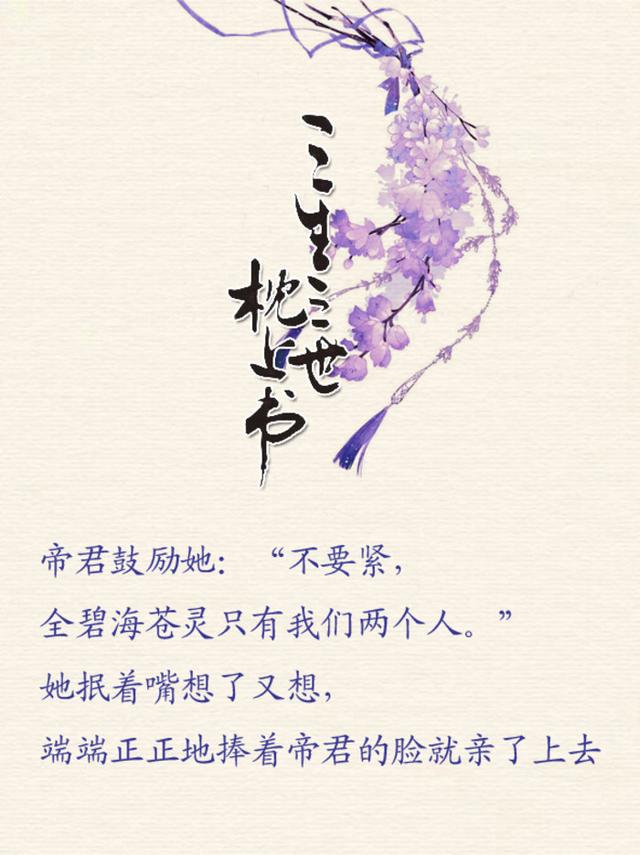 三生三世
枕上书
帝君鼓励她：“不要紧，
全碧海苍灵只有我们两个人。”
她抿着嘴想了又想，
端端正正地捧着帝君的脸就亲了上去